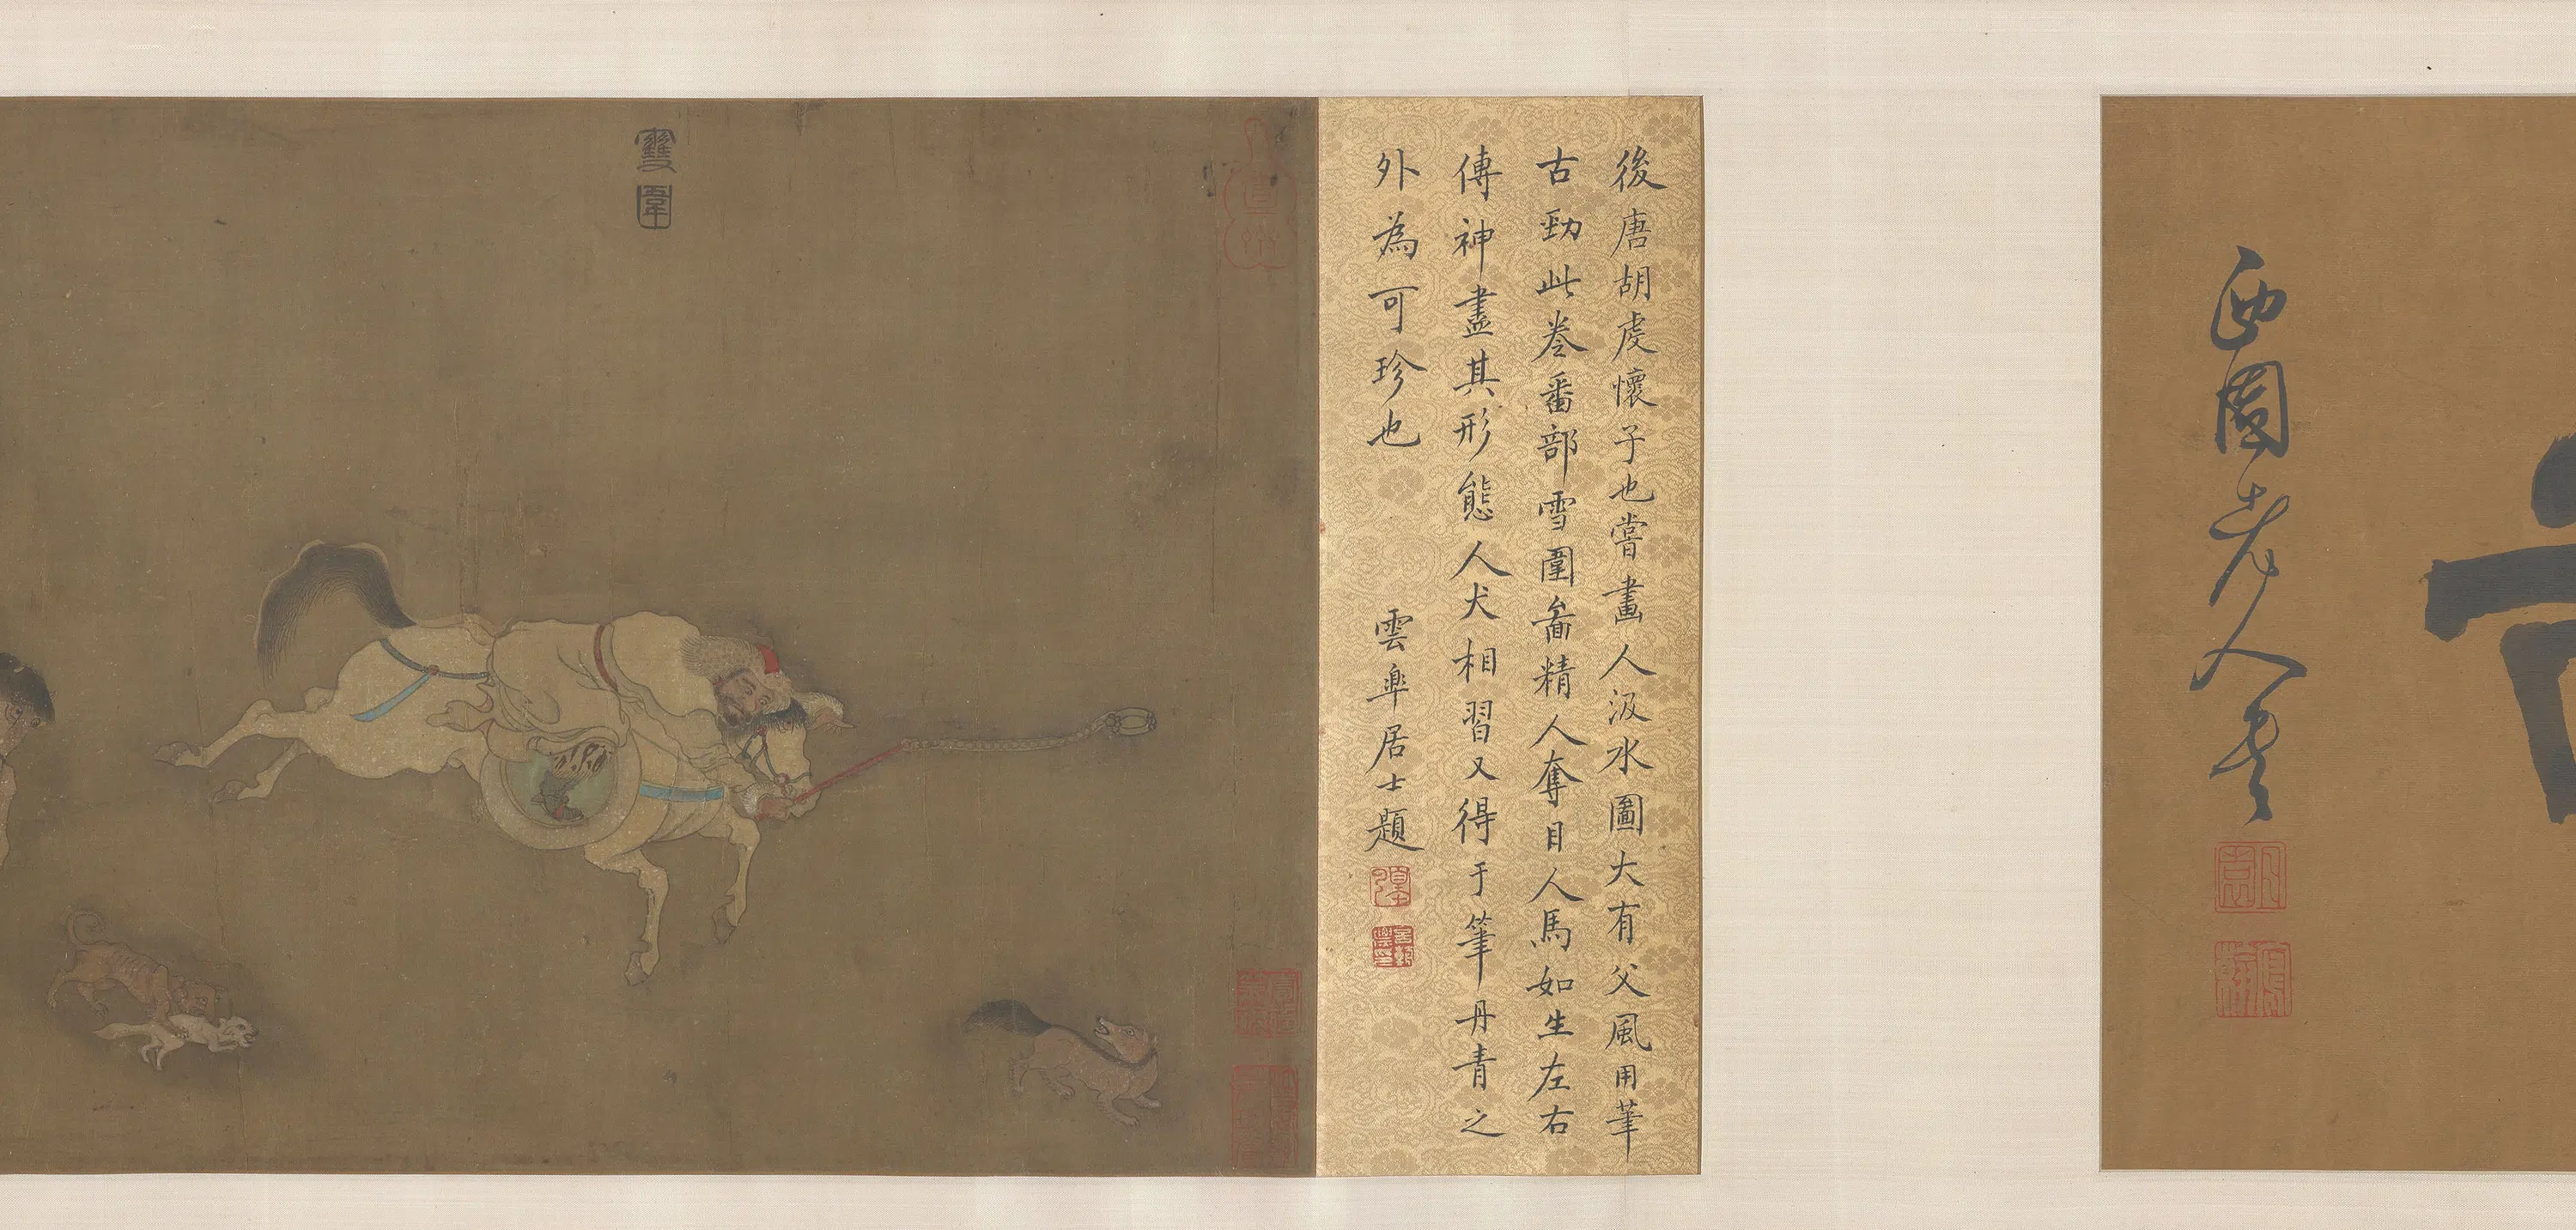 西園老人書
後唐胡虔懷子也嘗畫人汲水圖大有父風用筆
古勁此卷番部雪圍啚精人奪目人馬如生左右
傳神盡其形態人犬相習又得于筆丹青之
外為可珍也
雲皐居士題
雙圍